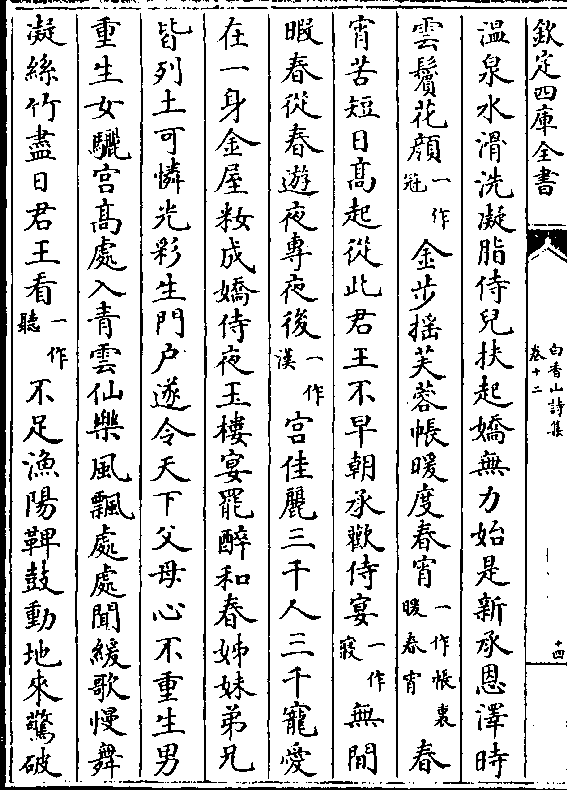 欽定四庫全書
白香山詩集
卷十二
十四
溫泉水滑洗凝脂侍兒扶起嬌無力始是新承恩澤時
雲鬢花顏一作冠金步搖芙蓉帳暖度春宵一作帳裏暖春宵春
宵苦短日髙起從此君王不早朝承歡侍宴一作寢無閒
暇春從春遊夜專夜後一作漢宮佳麗三千人三千寵愛
在一身金屋粧成嬌侍夜玉樓宴罷醉和春姊妹弟兄
皆列土可憐光彩生門户遂令天下父母心不重生男
重生女驪宮髙處入青雲仙樂風飄處處聞緩歌慢舞
凝絲竹盡日君王看一作聽不足漁陽鞞鼓動地來驚破